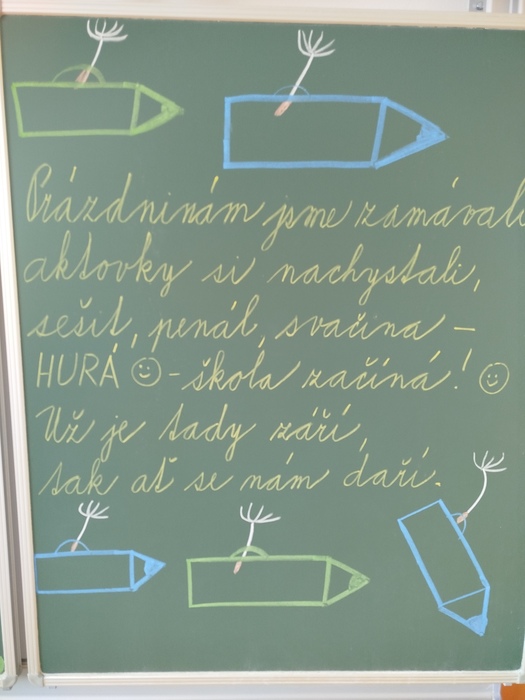 Prázdninám jsme zamávali
aktovky si nachystali,
sešit, penál, svačina –
HURÁ ☺ - škola začíná! ☺
Už je tady září,
tak ať se nám daří.